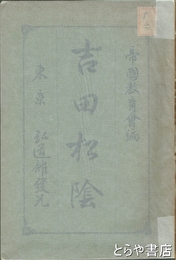 帝國教育會編
吉田松陰
東京 弘道館發兌
とらや書店